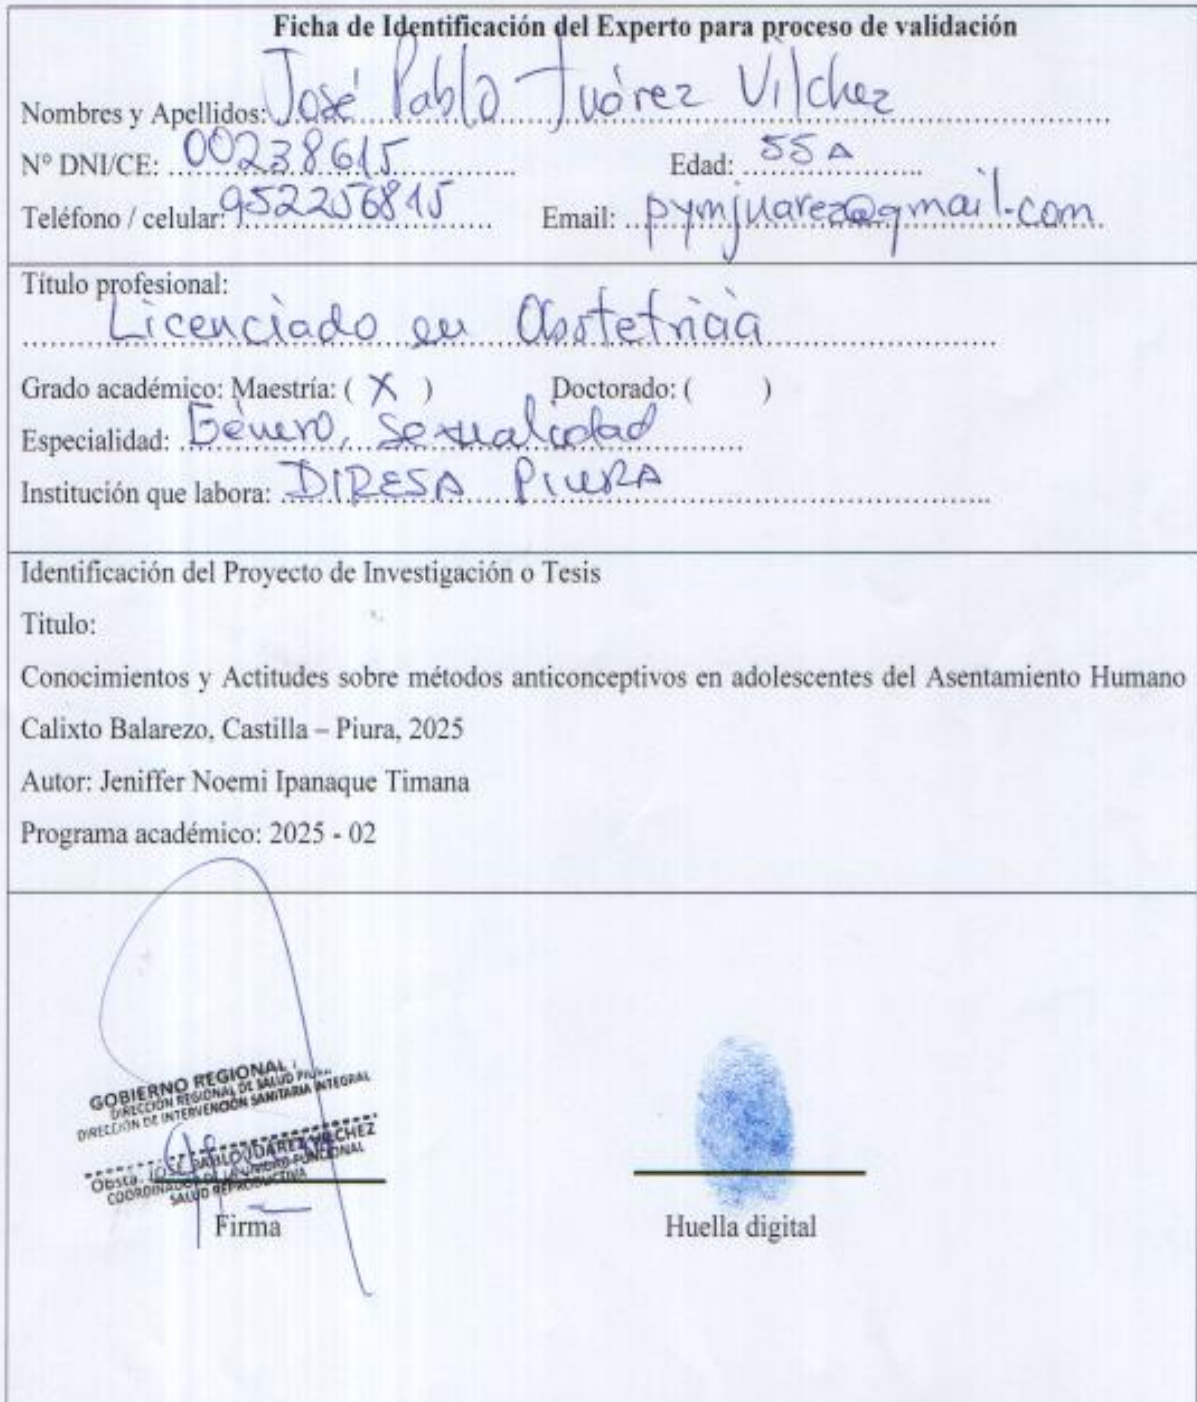 Ficha de Identificación del Experto para proceso de validación
Nombres y Apellidos: José Pablo Juárez Vilchez
N° DNI/CE: 00238615 Edad: 55 A
Teléfono / celular: 952256815 Email: pymjuarez@gmail.com
Título profesional:
Licenciado en Obstetricia
Grado académico: Maestría: ( X ) Doctorado: ( )
Especialidad: Género, Sexualidad
Institución que labora: DIRESA PIURA
Identificación del Proyecto de Investigación o Tesis
Titulo:
Conocimientos y Actitudes sobre métodos anticonceptivos en adolescentes del Asentamiento Humano
Calixto Balarezo, Castilla – Piura, 2025
Autor: Jeniffer Noemi Ipanaque Timana
Programa académico: 2025 - 02
GOBIERNO REGIONAL
DIRECCIÓN REGIONAL DE SALUD PIURA
DIRECCIÓN DE INTERVENCIÓN SANITARIA INTEGRAL
Obsta. JOSÉ PABLO JUAREZ VILCHEZ
COORDINADOR DE LA UNIDAD FUNCIONAL
SALUD REPRODUCTIVA
Firma Huella digital